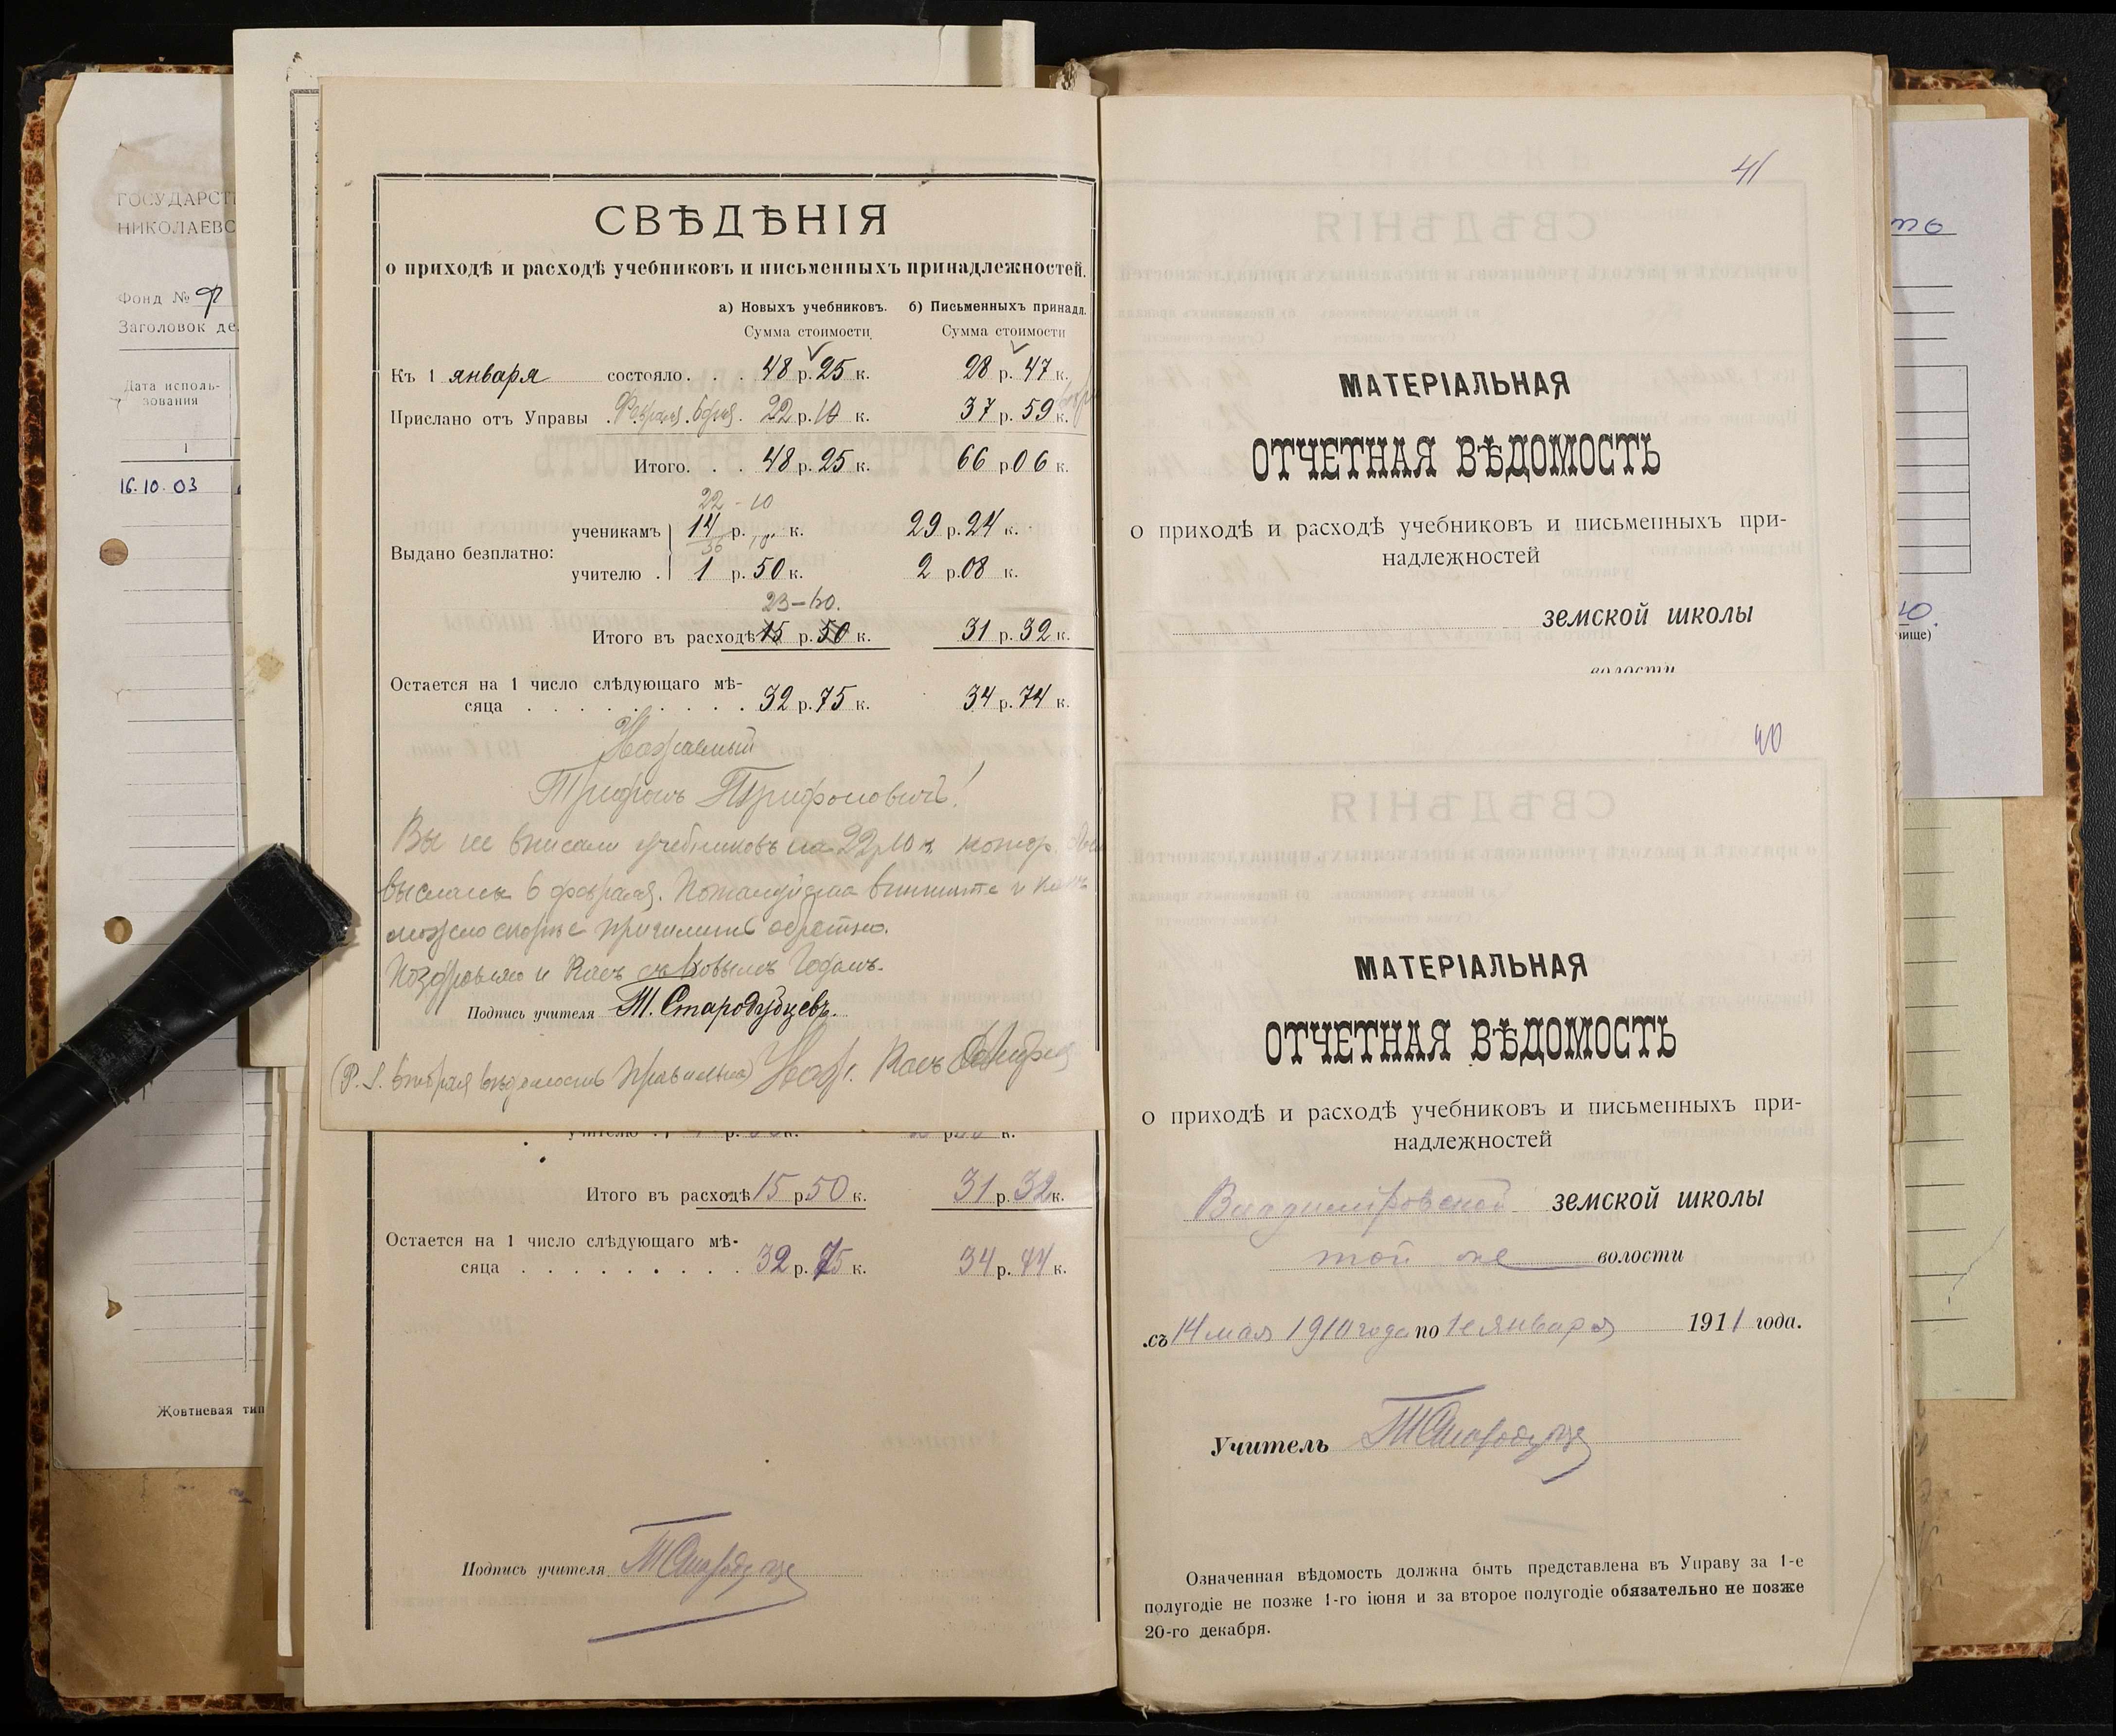 ГОСУДАРСТ
НИКОЛАЕВС
Фонд №
Заголовок де
Дата исполь-
зования
1
16.10.03
Жовтневая тип
СВѢДѢНІЯ
о приходѣ и расходѣ учебниковъ и письменныхъ принадлежностей.
а) Новыхъ учебниковъ. б) Письменныхъ принадл.
Сумма стоимости Сумма стоимости
Къ 1 января состояло. . . 48 р. 25 к. 28 р. 47 к.
Прислано отъ Управы 22 р. 10 к. 37 р. 59 к.
Итого. . . 48 р. 25 к. 66 р 06 к.
22 - 10
ученикамъ 14 р. „ к. 29 р. 24 к.
Выдано безплатно:
учителю . 1 р. 50 к. 2 р. 08 к.
23-60.
Итого въ расходѣ 15 р. 50 к. 31 р. 32 к.
Остается на 1 число слѣдующаго мѣ-
сяца . . . . . . . . . 32 р. 75 к. 34 р. 74 к.
Трифонъ Трифоновичъ!
Вы не вписали учебниковъ на 22 р 10 к
высланы 6 февраля. Пожалуйста впишите и
можно скорѣе пришлите обратно.
Поздравляю и Васъ съ Новымъ Годомъ.
Подпись учителя Т. Стародубцевъ.
(P. S. вторая вѣдомость правильна) Васъ
учителю . р. к. р к.
Итого въ расходѣ 15 р 50 к. 31 р. 32 к.
Остается на 1 число слѣдующаго мѣ-
сяца . . . . . . . . . 32 р. 75 к. 34 р. 74 к.
Подпись учителя
41
МАТЕРІАЛЬНАЯ
ОТЧЕТНАЯ ВѢДОМОСТЬ
о приходѣ и расходѣ учебниковъ и письменныхъ при-
надлежностей
земской школы
волости
40
МАТЕРІАЛЬНАЯ
ОТЧЕТНАЯ ВѢДОМОСТЬ
о приходѣ и расходѣ учебниковъ и письменныхъ при-
надлежностей
Владимировской земской школы
той же волости
съ 14 мая 1910 года по 1е января 1911 года.
Учитель
Означенная вѣдомость должна быть представлена въ Управу за 1-е
полугодіе не позже 1-го іюня и за второе полугодіе обязательно не позже
20-го декабря.
вище)